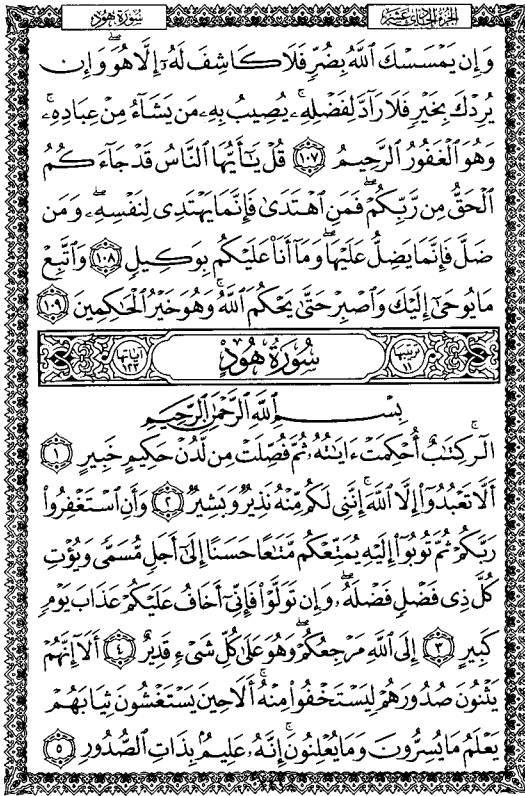 سُورَةُ هُودٍ
الجزء الحادي عشر
وَإِن يَمْسَسْكَ ٱللَّهُ بِضُرٍّ فَلَا كَاشِفَ لَهُۥٓ إِلَّا هُوَ ۖ وَإِن
يُرِدْكَ بِخَيْرٍ فَلَا رَآدَّ لِفَضْلِهِۦ ۚ يُصِيبُ بِهِۦ مَن يَشَآءُ مِنْ عِبَادِهِۦ ۚ
وَهُوَ ٱلْغَفُورُ ٱلرَّحِيمُ ١٠٧ قُلْ يَٰٓأَيُّهَا ٱلنَّاسُ قَدْ جَآءَكُمُ
ٱلْحَقُّ مِن رَّبِّكُمْ ۖ فَمَنِ ٱهْتَدَىٰ فَإِنَّمَا يَهْتَدِى لِنَفْسِهِۦ ۖ وَمَن
ضَلَّ فَإِنَّمَا يَضِلُّ عَلَيْهَا ۖ وَمَآ أَنَا۠ عَلَيْكُم بِوَكِيلٍ ١٠٨ وَٱتَّبِعْ
مَا يُوحَىٰٓ إِلَيْكَ وَٱصْبِرْ حَتَّىٰ يَحْكُمَ ٱللَّهُ ۚ وَهُوَ خَيْرُ ٱلْحَٰكِمِينَ ١٠٩
ترتيبها ١١
سُورَةُ هُودٍ
آياتها ١٢٣
بِسْمِ ٱللَّهِ ٱلرَّحْمَٰنِ ٱلرَّحِيمِ
الٓر ۚ كِتَٰبٌ أُحْكِمَتْ ءَايَٰتُهُۥ ثُمَّ فُصِّلَتْ مِن لَّدُنْ حَكِيمٍ خَبِيرٍ ١
أَلَّا تَعْبُدُوٓا۟ إِلَّا ٱللَّهَ ۚ إِنَّنِى لَكُم مِّنْهُ نَذِيرٌ وَبَشِيرٌ ٢ وَأَنِ ٱسْتَغْفِرُوا۟
رَبَّكُمْ ثُمَّ تُوبُوٓا۟ إِلَيْهِ يُمَتِّعْكُم مَّتَٰعًا حَسَنًا إِلَىٰٓ أَجَلٍ مُّسَمًّى وَيُؤْتِ
كُلَّ ذِى فَضْلٍ فَضْلَهُۥ ۖ وَإِن تَوَلَّوْا۟ فَإِنِّىٓ أَخَافُ عَلَيْكُمْ عَذَابَ يَوْمٍ
كَبِيرٍ ٣ إِلَى ٱللَّهِ مَرْجِعُكُمْ ۖ وَهُوَ عَلَىٰ كُلِّ شَىْءٍ قَدِيرٌ ٤ أَلَآ إِنَّهُمْ
يَثْنُونَ صُدُورَهُمْ لِيَسْتَخْفُوا۟ مِنْهُ ۚ أَلَا حِينَ يَسْتَغْشُونَ ثِيَابَهُمْ
يَعْلَمُ مَا يُسِرُّونَ وَمَا يُعْلِنُونَ ۚ إِنَّهُۥ عَلِيمٌۢ بِذَاتِ ٱلصُّدُورِ ٥